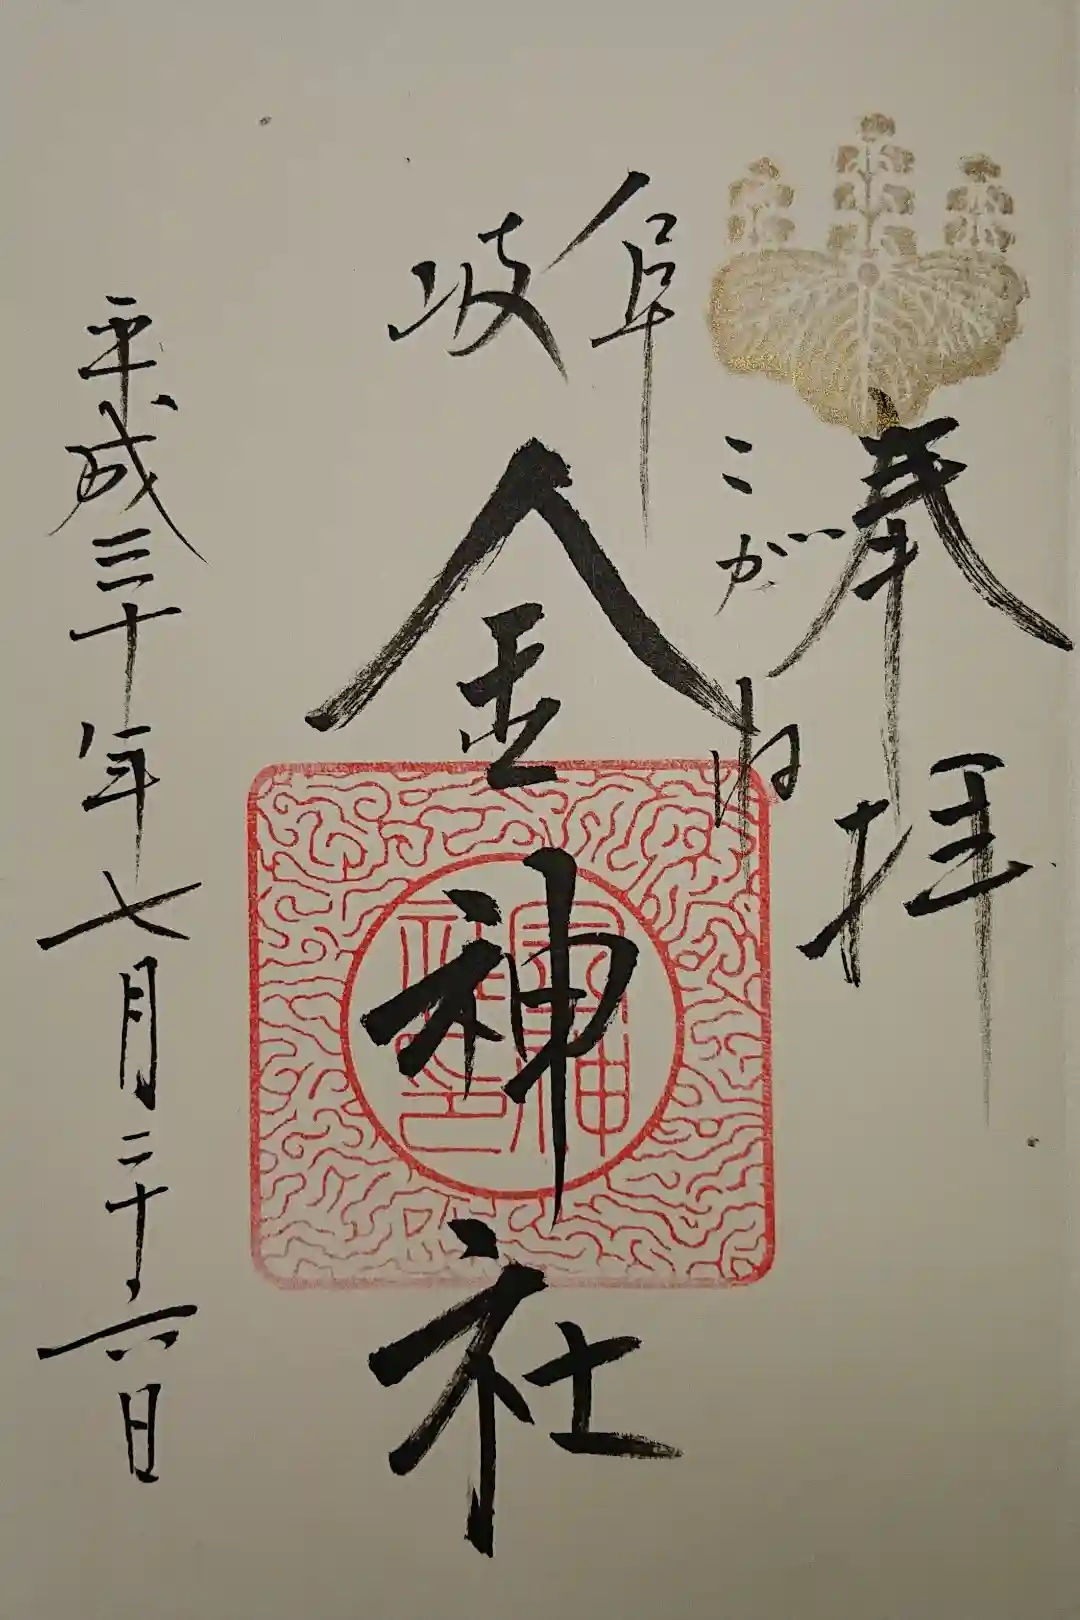 奉拝
こがね
岐阜
金神社
平成三十年七月二十六日